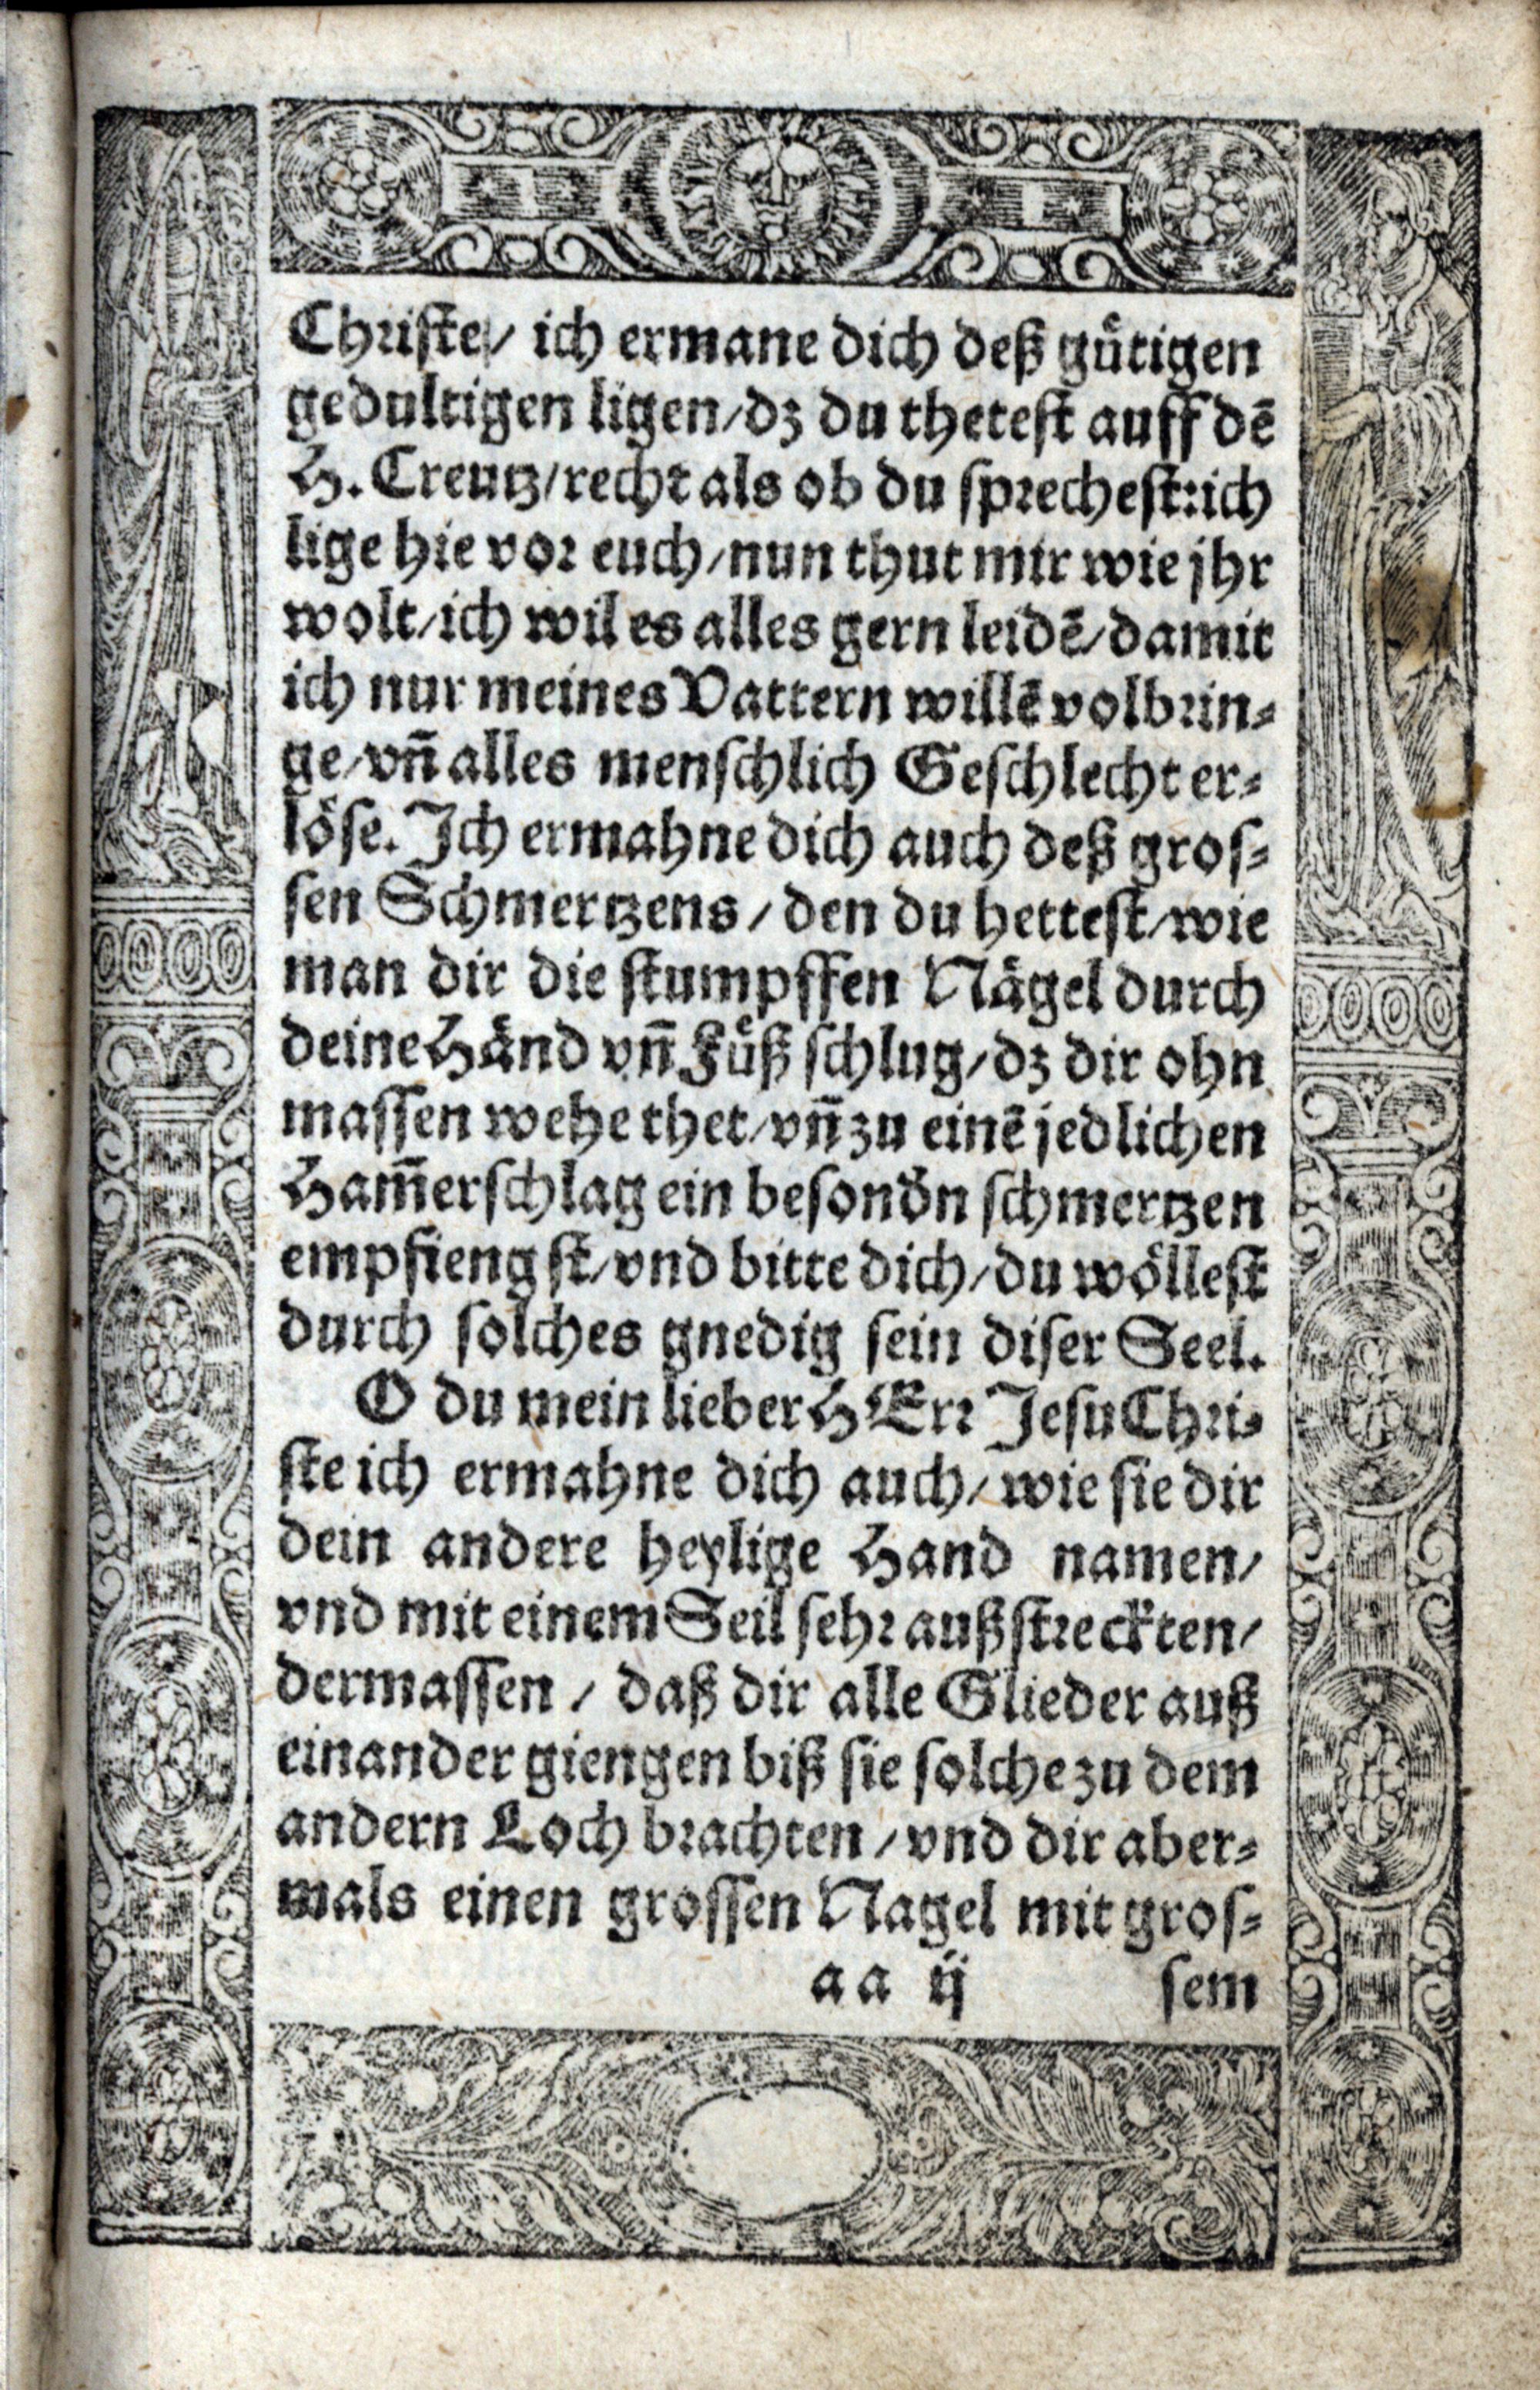 Christe / ich ermane dich deß gütigen
gedultigen ligen / dz du thetest auff dē
H. Creutz / recht als ob du sprechest: ich
lige hie vor euch / nun thut mir wie jhr
wolt / ich wil es alles gern leidē / damit
ich nur meines Vattern willē volbrin⸗
ge / vñ alles menschlich Geschlecht er⸗
löse. Ich ermahne dich auch deß gros⸗
sen Schmertzens / den du hettest / wie
man dir die stumpffen Nägel durch
deine Händ vñ Füß schlug / dz dir ohn
massen wehe thet / vñ zu einē jedlichen
Ham̄erschlag ein besond̛n schmertzen
empfiengst / vnd bitte dich / du wöllest
durch solches gnedig sein diser Seel.
O du mein lieber HErr Jesu Chri⸗
ste ich ermahne dich auch / wie sie dir
dein andere heylige Hand namen /
vnd mit einem Seil sehr außstreckten /
dermassen / daß dir alle Glieder auß
einander giengen biß sie solche zu dem
andern Loch brachten / vnd dir aber⸗
mals einen grossen Nagel mit gros⸗
aa ij sem